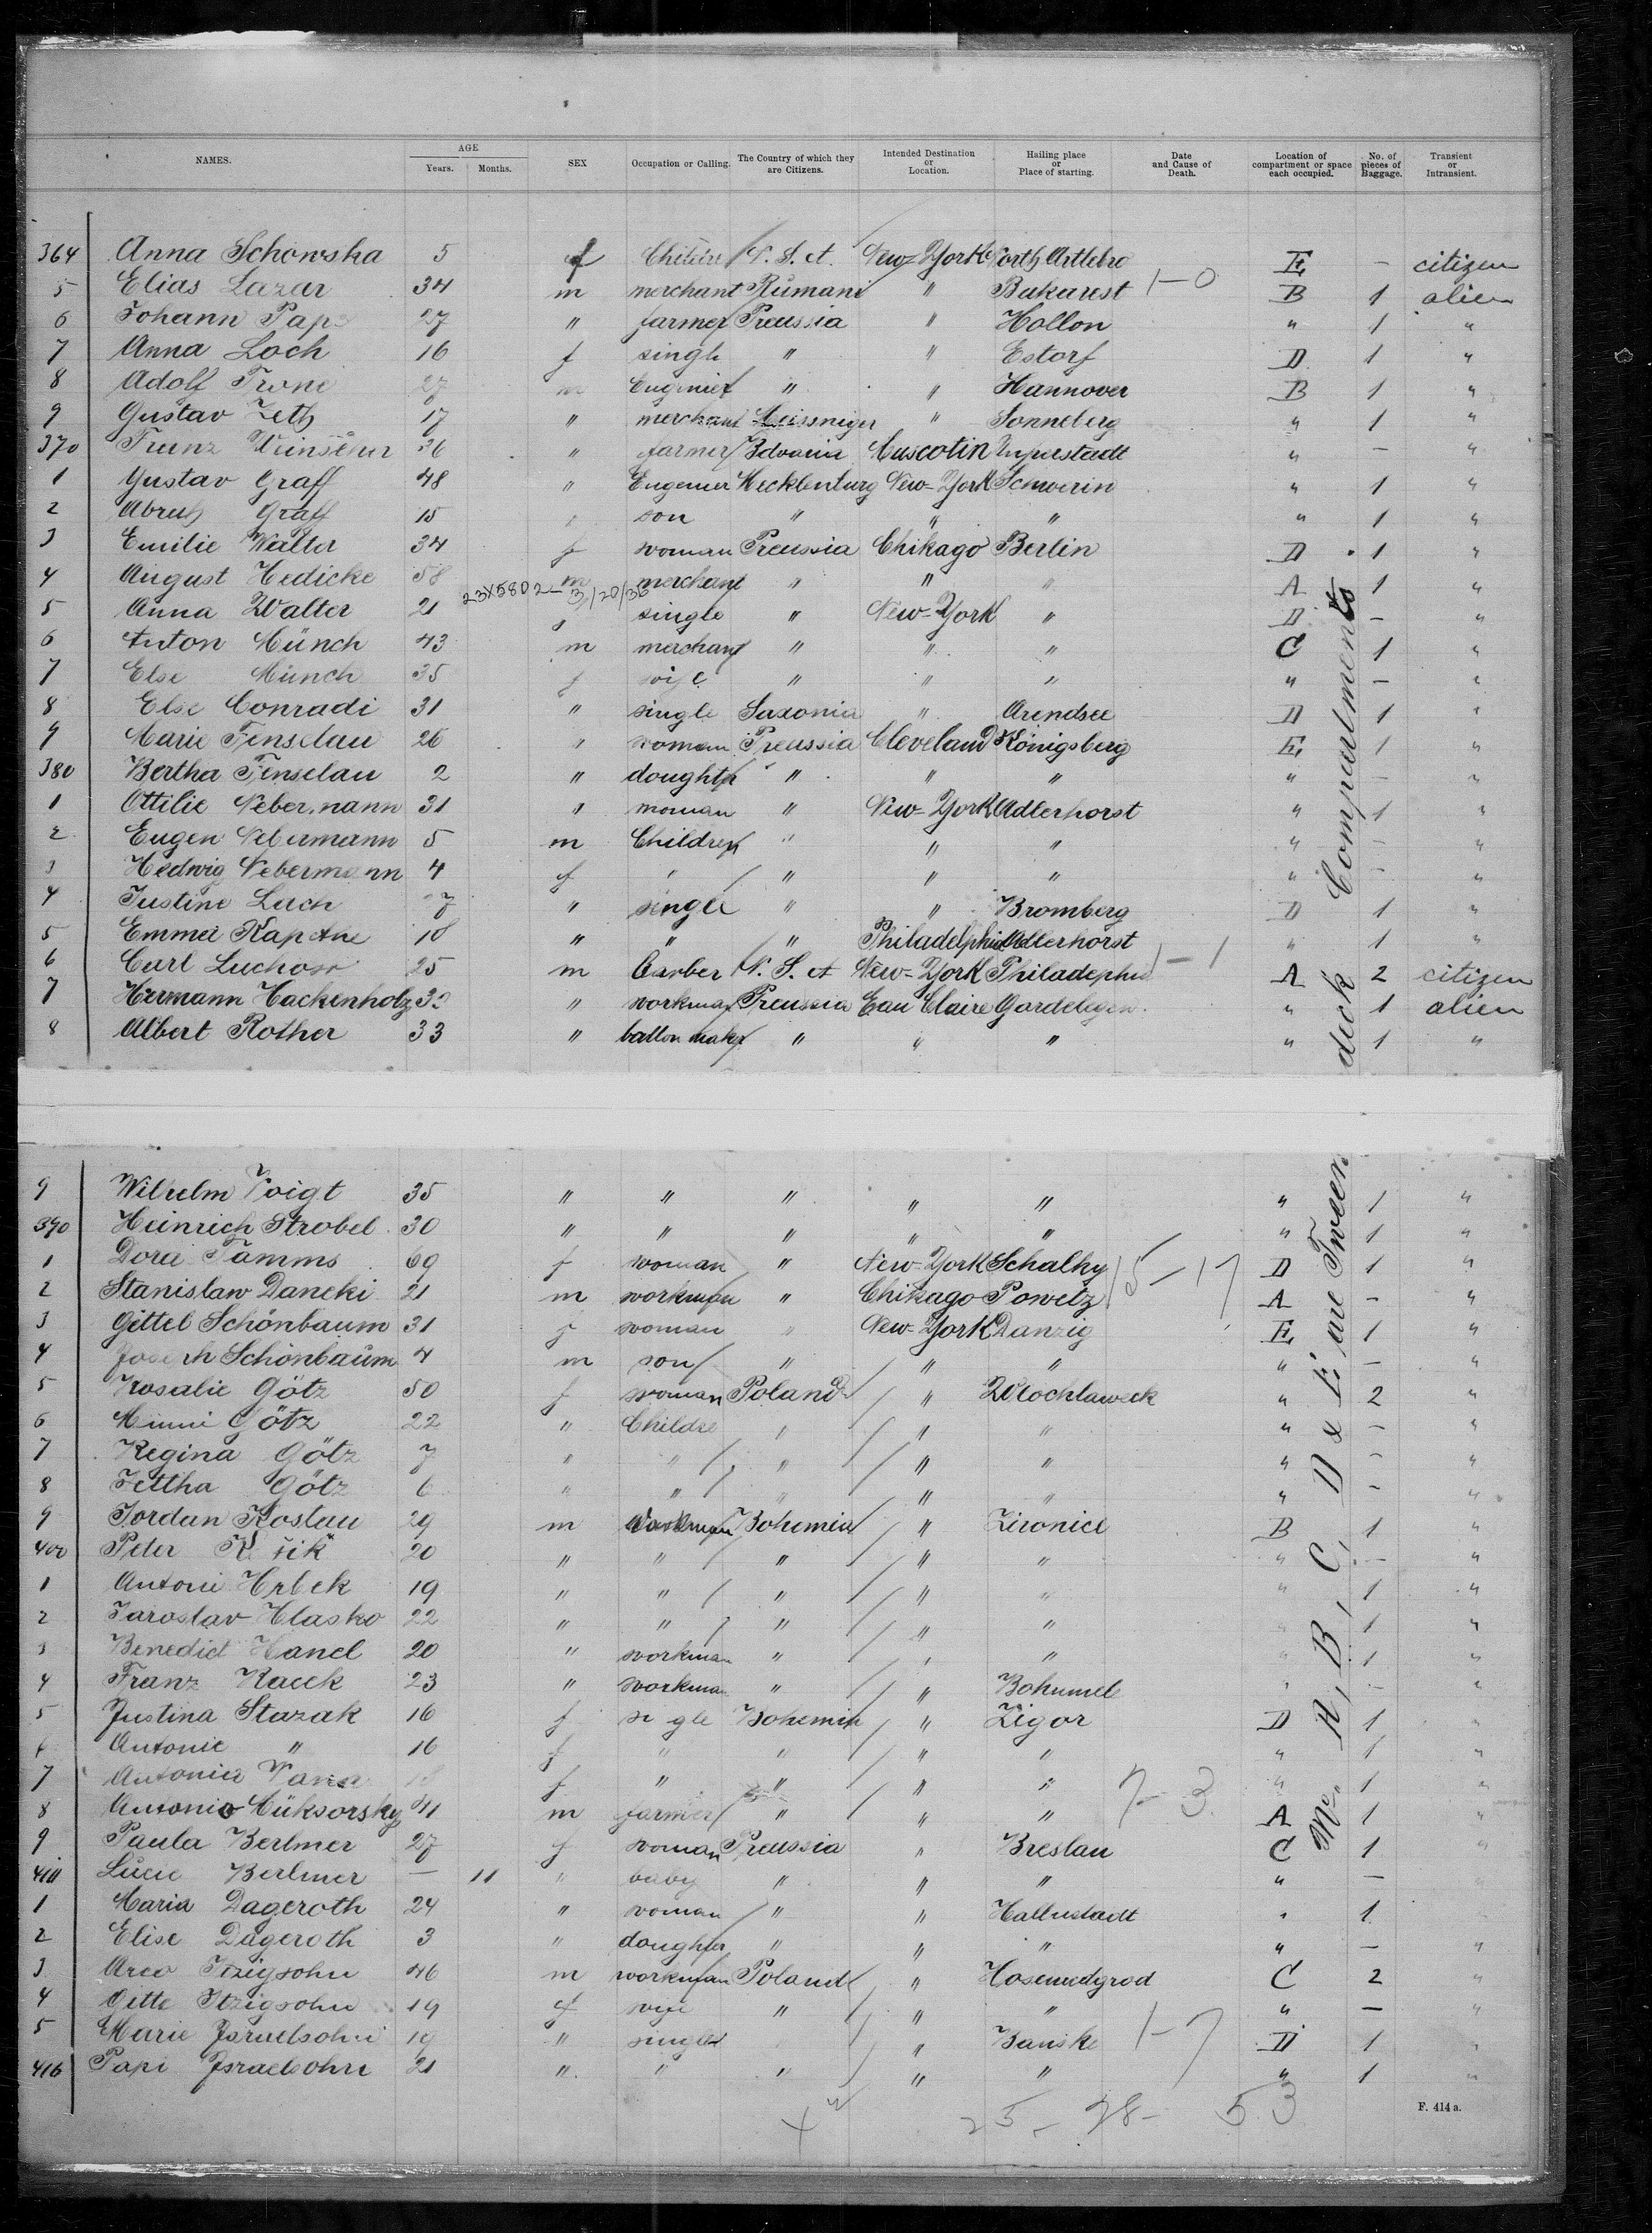 NAMES. AGE Years. Months. SEX Occupation or Calling. The Country of which they are Citizens. Intended Destination or Location. Hailing place or Place of starting. Date and Cause of Death. Location of compartment or space each occupied. No. of pieces of Baggage. Transient or Intransient.
364 Anna Schowska 5 f U. S. A. New-York North E - citizen
5 Elias Lazar 34 m merchant Rumani " Bukarest 1-0 B 1 alien
6 Johann Pape 27 " farmer Preussia " Hollon " 1 "
7 Anna Loch 16 f single " " Estorf D 1 "
8 Adolf Trone 27 m " " Hannover B 1 "
9 Gustav Zeth 17 " merchant Meissniger " Sonneberg " 1 "
370 Franz 36 " farmer Muscotin " - "
1 Gustav Graff 48 " Engeneer Mecklenburg New-York Schwerin " 1 "
2 Graff 15 son " " " " 1 "
3 Emilie Walter 34 f woman Preussia Chikago Berlin D 1 "
4 August Hedicke 58 m merchant " " " A 1 "
23X5802 - 3/20/36
5 Anna Walter 21 f single " New-York " D - "
6 Anton Münch 43 m merchant " " " C 1 "
7 Else Münch 35 f wife " " " " - "
8 Else Conradi 31 " single Saxonia " Arendsee D 1 "
9 Marie Fenselau 26 " woman Preussia Cleveland Königsberg E 1 "
380 Bertha Fenselau 2 " doughter " " " " - "
1 Ottilie Nebermann 31 " woman " New-York Adlerhorst " 1 "
2 Eugen Nebermann 5 m Children " " " " - "
3 Hedwig Nebermann 4 f " " " " " - "
4 Justine Luch 27 " single " " Bromberg D 1 "
5 Emma 18 " " " Philadelphia Adlerhorst " 1 "
6 Carl 25 m Barber U. S. A New-York Philadephia 1-1 A 2 citizen
7 Hermann Hackenholz 32 " workman Preussia Eau Claire Gardelegen " 1 alien
8 Albert Rother 33 " button maker " " " " 1 "
9 Wilhelm Voigt 35 " " " " " " 1 "
390 Heinrich Strobel 30 " " " " " " 1 "
1 Dora Tamms 69 f woman " New-York Schalky 15-17 D 1 "
2 Stanislaw Daneki 21 m workman " Chikago Powitz A - "
3 Gittel Schönbaum 31 f woman " New-York Danzig E 1 "
4 Joseph Schönbaum 4 m son " " " " - "
5 Rosalie Götz 50 f woman Poland " Wlochlaweck " 2 "
6 Minni Götz 22 " Childre " " " " - "
7 Regina Götz 7 " " " " " " - "
8 Jettha Götz 6 " " " " " " - "
9 Jordan Kostau 29 m Workman Bohemia " Zironice B 1 "
400 Peter 20 " " " " " " - "
1 Antoni Hrbek 19 " " " " " " 1 "
2 Jaroslav Hlasko 22 " " " " " " 1 "
3 Benedict Hanel 20 " workman " " " " 1 "
4 Franz Kacek 23 " workman " " Bohumele " - "
5 Justina Stazak 16 f single Bohemia " Zigor D 1 "
6 Antonie " 16 f " " " " " 1 "
7 Antonia Vana 18 f " " " " 7-3 " 1 "
8 Antonio 41 m farmer " " " A 1 "
9 Paula Berlmer 27 f woman Preussia " Breslau C 1 "
410 Lucie Berlmer - 11 " baby " " " " - "
1 Maria Dageroth 24 " woman " " Hallnstadt " 1
2 Elise Dageroth 3 " doughter " " " " - "
3 Itzigsohn 46 m workman Poland " C 2 "
4 Gette Itzigsohn 19 f wife " " " " - "
5 Marie Israelsohn 19 " single " Bauske 1-7 D 1 "
416 Papi Israelsohn 21 " " " " " " 1 "
25 - 28 - 53
F. 414 a.
A, B, C, D & E are Tween deck Compartments